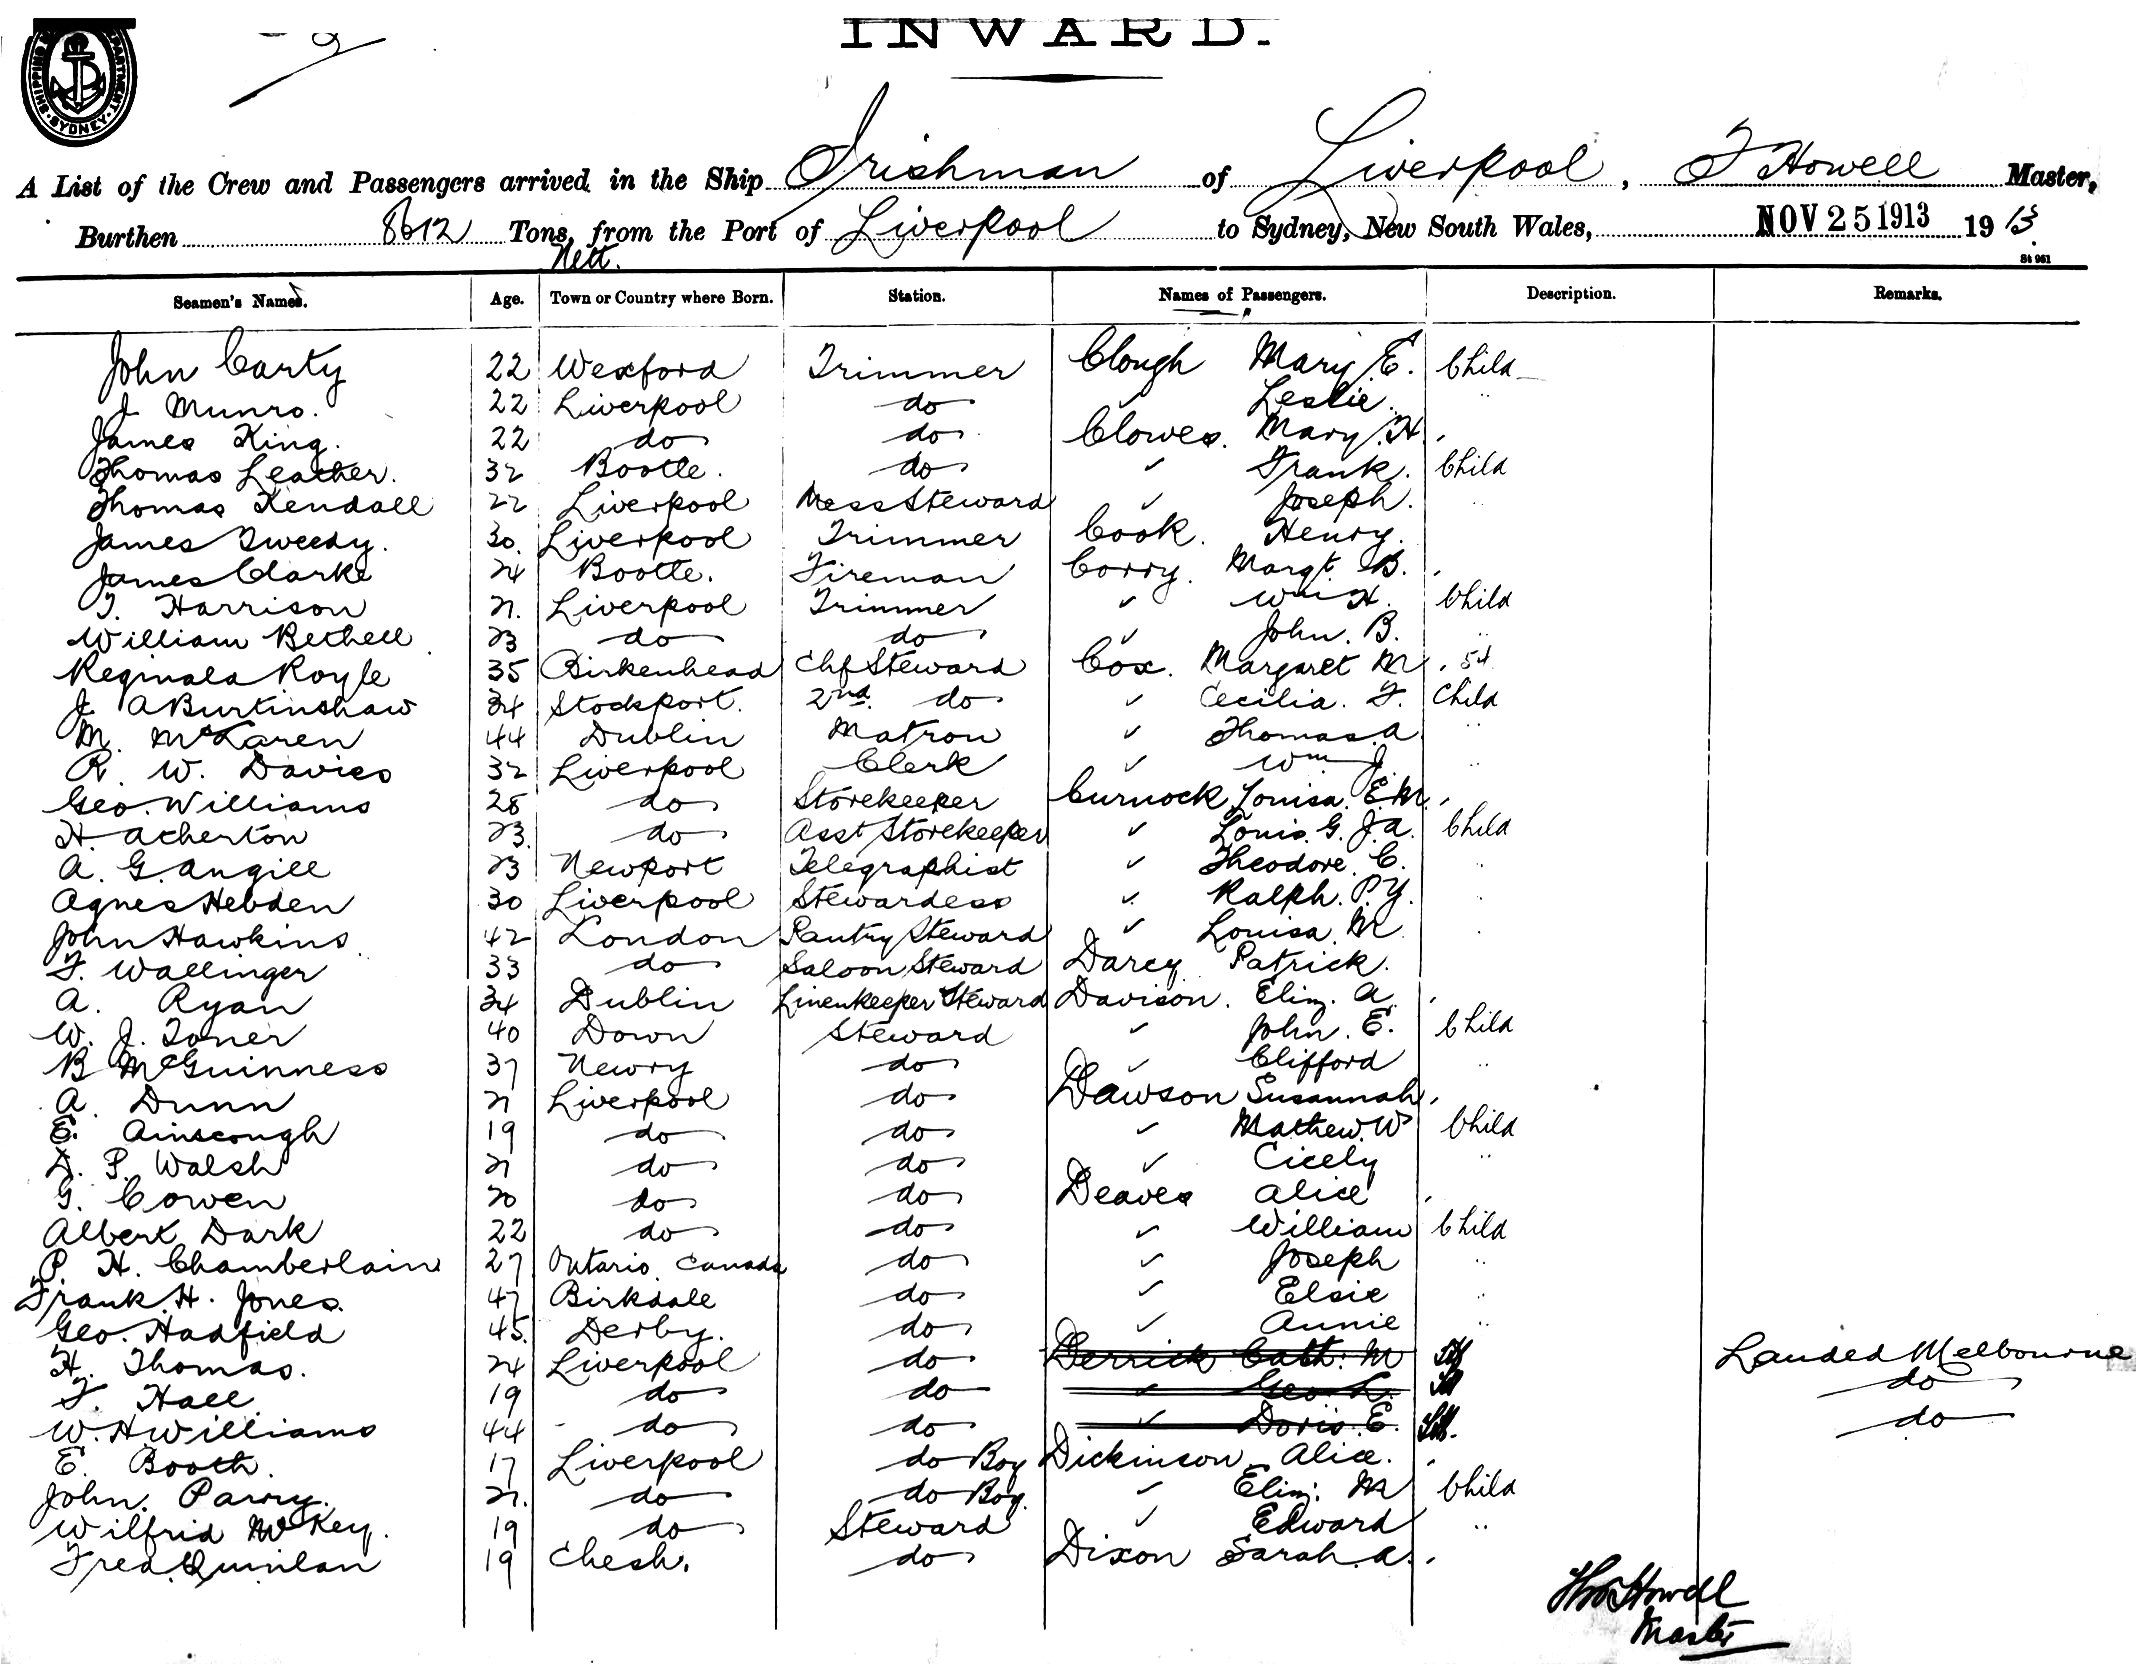 INWARD.
SHIPPING DEPARTMENT SYDNEY
A List of the Crew and Passengers arrived in the Ship Irishman of Liverpool, T Howell Master,
Burthen 8612 Tons, from the Port of Liverpool to Sydney, New South Wales, NOV 25 1913 1913
Nett.
St 961
Seamen's Names. Age. Town or Country where Born. Station. Names of Passengers. Description. Remarks.
John Carty 22 Wexford Trimmer Clough Mary E. Child
J Munro. 22 Liverpool do Leslie "
James King. 22 do do Clowes. Mary H.
Thomas Leather. 32 Bootle. do ✓ Frank. Child
Thomas Kendall 22 Liverpool Mess Steward ✓ Joseph. "
James Tweedy. 30. Liverpool Trimmer Cook. Henry.
James Clarke 24 Bootle. Fireman Corry. Margt. B.
T. Harrison 21. Liverpool Trimmer ✓ Wm H. Child
William Bethell 23 do do ✓ John. B. "
Reginald Royle 35 Birkenhead Chf Steward Cox. Margaret M
J. A Burtinshaw 34 Stockport. 2nd. do ✓ Cecilia. F. Child
M. McLaren 44 Dublin Matron ✓ Thomas. A "
R. W. Davies 32 Liverpool Clerk ✓ Wm J. "
Geo. Williams 28 do Storekeeper Curnock Louisa. E.M.
H. Atherton 23. do Asst Storekeeper ✓ Louis. G. J.A. Child
A. G. Angill 23 Newport Telegraphist ✓ Theodore. C. "
Agnes Hebden 30 Liverpool Stewardess ✓ Ralph. P.Y. "
John Hawkins 42 London Pantry Steward ✓ Louisa. M "
F. Wallinger 33 do Saloon Steward Darcy Patrick.
A. Ryan 34 Dublin Linenkeeper Steward Davison. Eliz. A.
W. J. Toner 40 Down Steward ✓ John. E. Child
B McGuinness 37 Newry do ✓ Clifford "
A. Dunn 21 Liverpool do Dawson Susannah.
E. Ainscough 19 do do ✓ Mathew. W Child
D. P. Walsh 21 do do ✓ Cicely "
G. Cowen 20 do do Deaves Alice
Albert Dark 22 do do ✓ William Child
P. H. Chamberlain 27 Ontario. Canada do ✓ Joseph "
Frank. H. Jones. 47 Birkdale do ✓ Elsie "
Geo. Hadfield 45. Derby. do ✓ Annie "
H. Thomas. 24 Liverpool do Derrick Cath: M Landed Melbourne
F. Hall 19 do do ✓ Geo. L. do
W. H Williams 44 do do ✓ Doris. E. do
E. Booth. 17 Liverpool do Boy Dickinson Alice.
John. Parry. 21. do do Boy. ✓ Eliz: M Child
Wilfrid McKey. 19 do Steward ✓ Edward "
Fred. Quinlan 19 Chesh. do Dixon Sarah. A.
Thos Howell
Master